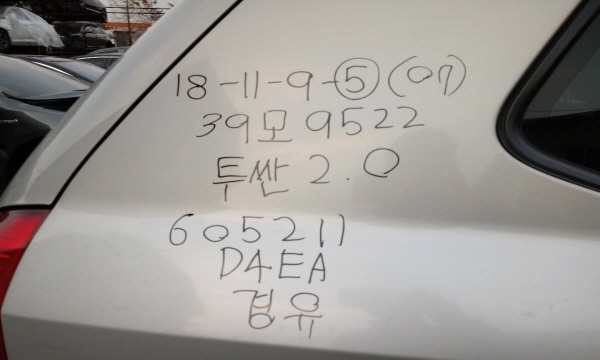 18-11-9-5(07)
39모9522
투싼 2.0
605211
D4EA
경유